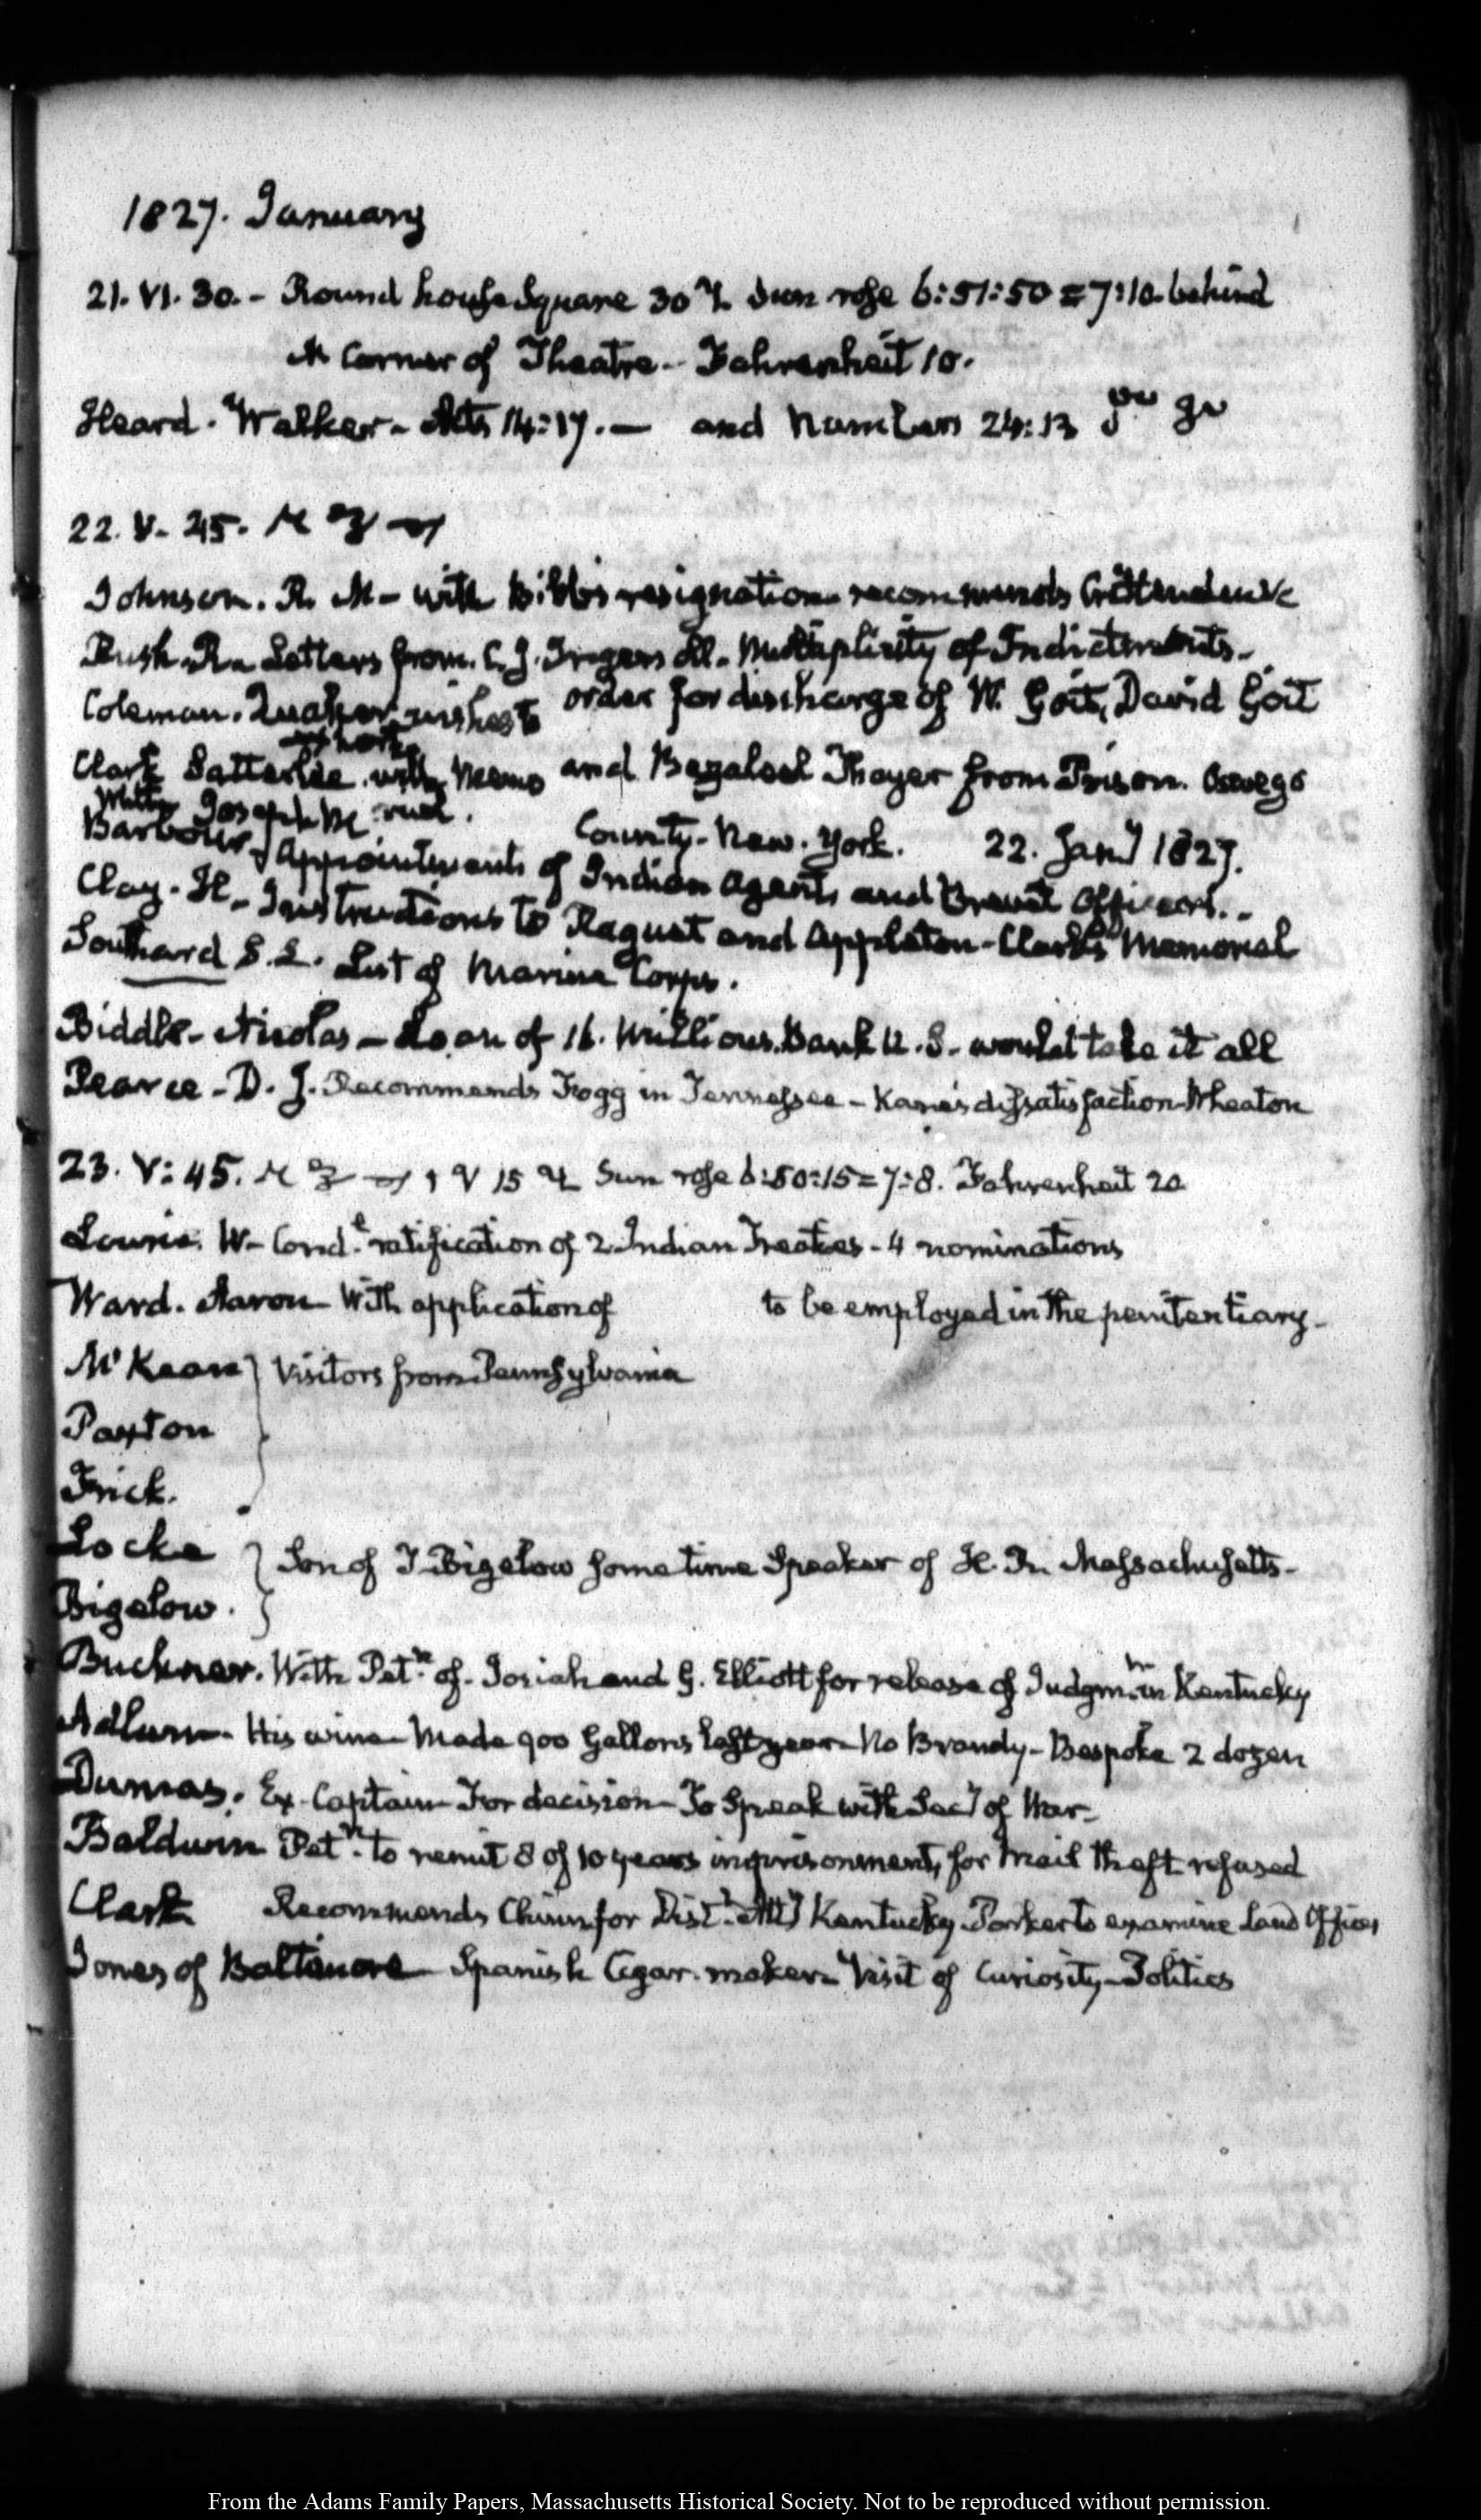 1827. January
21. VI. 30. - Round house Square 30 Sun rose 6:51:50 = 7:10. behind
Corner of Theatre - Fahrenheit 10.
Heard. Walker - Acts 14:17. — and Numbers 24:13
22. V. 45.
Johnson. R. M - with Bibb's resignation recommends Crittenden &c
Rush. R. Letters from C. J. Ingersoll. Multiplicity of Indictments.
Coleman. Quaker wishes to exhort
order for discharge of W. Goit, David Goit
Clark Satterlee with Memo and Bezaleel Thayer from Prison. Oswego
County. New. York. 22. Jany 1827.
Barbour. J Appointments of Indian Agents and Brevet Officers.
Clay. H. Instructions to Raguet and Appleton - Clark's Memorial
Southard S. L. List of Marine Corps.
Biddle - Nicolas - Loan of 16. Millions. Bank U. S. would take it all
Pearce - D. J. Recommends Fogg in Tennessee - Kane's dissatisfaction - Wheaton
23. V: 45. 15 Sun rose 6:50:15 = 7:8. Fahrenheit 20
Lowrie. W - Cond.l ratification of 2 Indian Treaties - 4 nominations
Ward. Aaron With application of to be employed in the penitentiary -
McKean } Visitors from Pennsylvania
Paxton
Frick.
Locke } Son of T. Bigelow sometime Speaker of H. R. Massachusetts -
Bigelow.
Buckner. With Petn. of Josiah and G. Elliott for release of Judgmt. in Kentucky
Adlum - His wine Made 900 Gallons last year - No Brandy - Bespoke 2 dozen
Dumas. Ex. Captain For decision - To Speak with Secy of War -
Baldwin Petn. to remit 8 of 10 years imprisonment, for Mail theft refused
Clark Recommends Chinn for Dist. Atty Kentucky. Parker to examine Land Offices
Jones of Baltimore Spanish Cigar-maker Visit of Curiosity - Politics
From the Adams Family Papers, Massachusetts Historical Society. Not to be reproduced without permission.